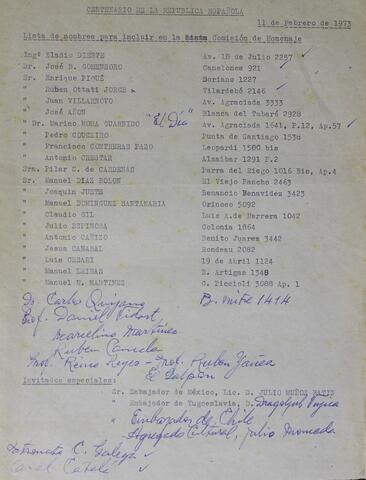 CENTENARIO DE LA REPUBLICA ESPAÑOLA
11 de Febrero de 1973
Lista de nombres para incluir en la Comisión de Homenaje
Ingº Eladio DIESTE Av. 18 de Julio 2257
Dr. José B. GOMENSORO Canelones 921
Sr. Enrique PIQUÉ Soriano 1227
" Ruben Ottati JORGE Vilardebó 2146
" Juan VILLARNOVO Av. Agraciada 3333
" José AÑON Blanca del Tabaré 2928
" Dr. Marino MORA GUARNIDO "El Día" Av. Agraciada 1641, P.12, Ap.57
" Pedro COUCEIRO Punta de Santiago 1538
" Francisco CONTRERAS PAZO Leopardi 1500 bis
" Antonio CRESTAR Alzaibar 1291 P.2
Sra. Pilar C. de CARDENAS Parra del Riego 1016 Bis, Ap.4
Sr. Manuel DIAZ BOLON El Viejo Pancho 2463
" Joaquin JUSTE Demancio Benavides 3423
" Manuel DOMINGUEZ SANTAMARIA Orinoco 5092
" Claudio GIL Luis A.de Herrera 1042
" Julio ESPINOSA Colonia 1864
" Antonio CAÑIZO Benito Juarez 3442
" Jesus CANABAL Rondeau 2082
" Luis CESARI 19 de Abril 1124
" Manuel LEIRAS B. Artigas 1348
" Manuel M. MARTINEZ G. Piccioli 3088 Ap. 1
Dr. Carlos Quijano B. Mitre 1414
Prof. Daniel Vidart
Marcelino Martínez
Ruben Canela
Prof. Reino Reyes - Prof. Ruben Yáñez
El Galpón
Invitados especiales:
Sr. Embajador de México, Lic. D. JULIO MUÑOZ
" Embajador de Yugoeslavia, D.
" Embajador de Chile
" Agregado Cultural, Julio Moncada
Patronato C. Galega
Casal Català